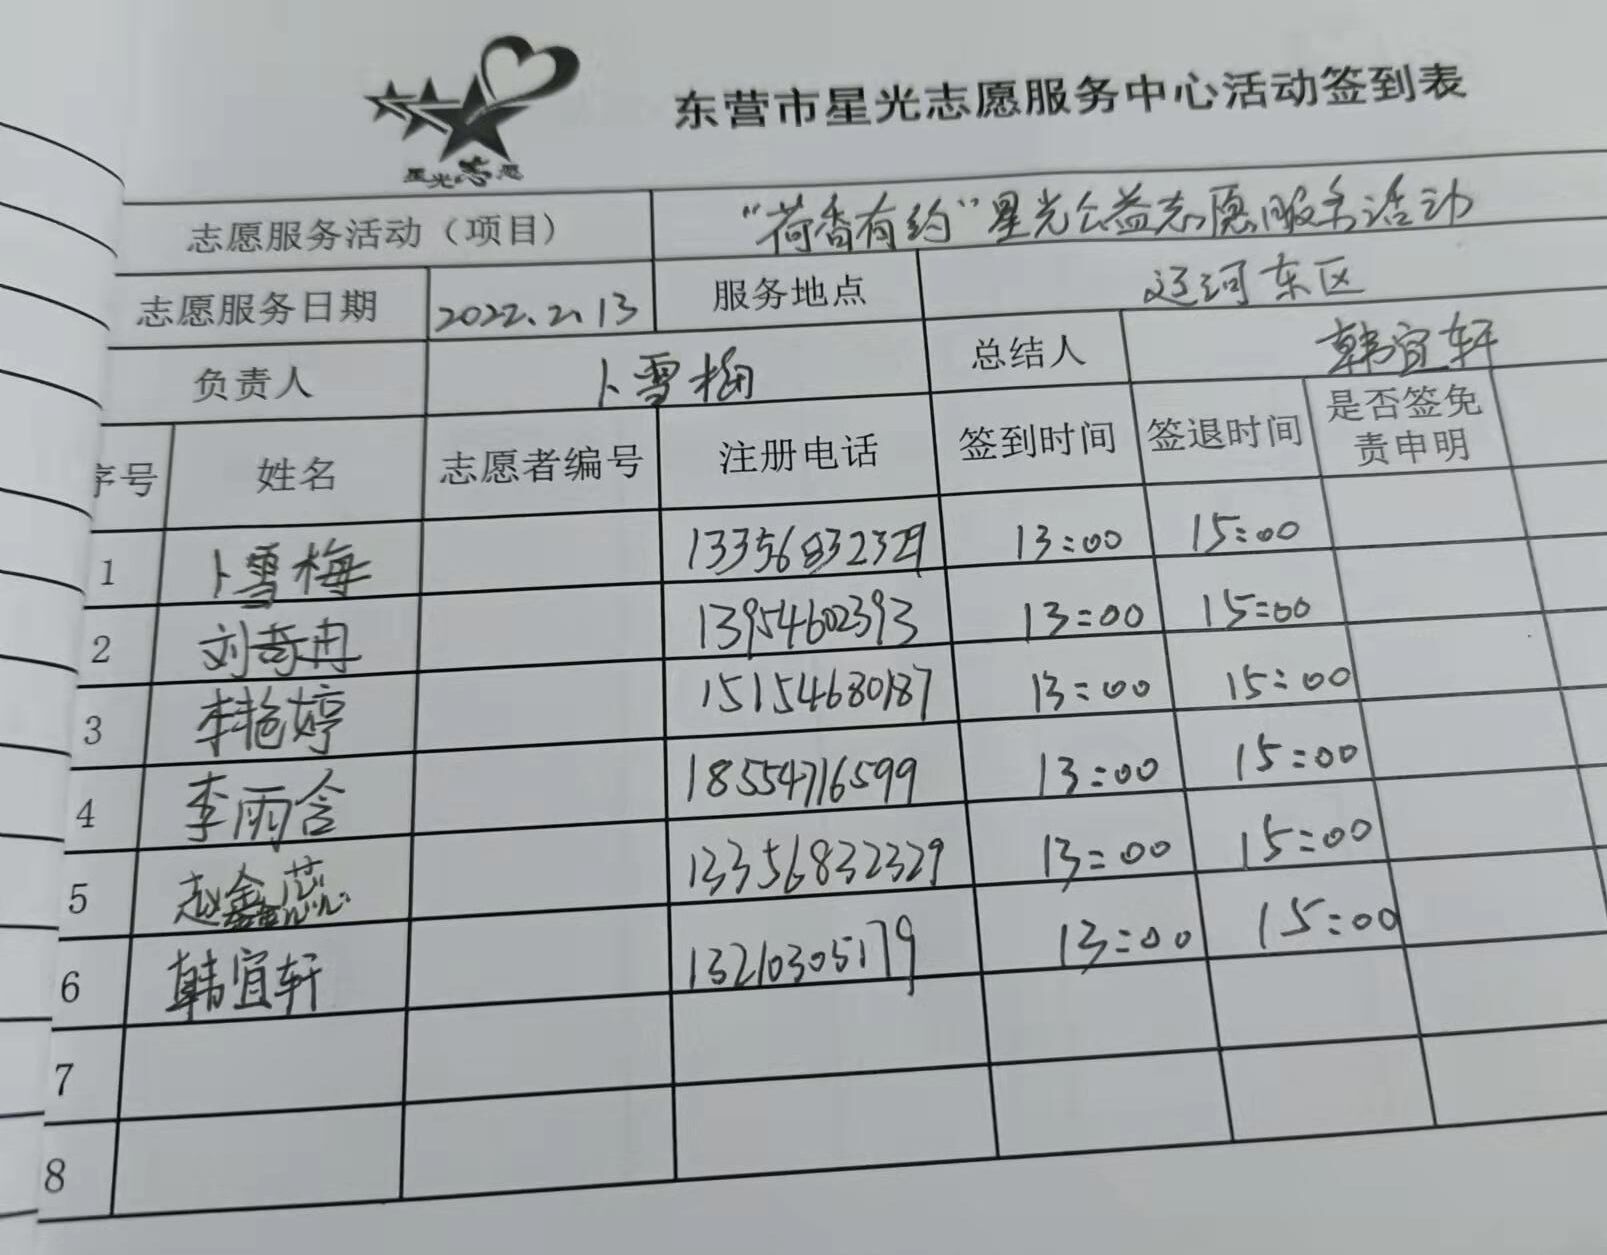 星光志愿
东营市星光志愿服务中心活动签到表
志愿服务活动（项目） “荷香有约”星光公益志愿服务活动
志愿服务日期 2022.2.13 服务地点 辽河东区
负责人 卜雪梅 总结人 韩宜轩
序号 姓名 志愿者编号 注册电话 签到时间 签退时间 是否签免
责申明
1 卜雪梅 13356832329 13:00 15:00
2 刘奇冉 13954602393 13:00 15:00
3 李艳婷 15154680187 13:00 15:00
4 李雨含 18554716599 13:00 15:00
5 赵鑫蕊 13356832329 13:00 15:00
6 韩宜轩 13210305179 13:00 15:00
7
8